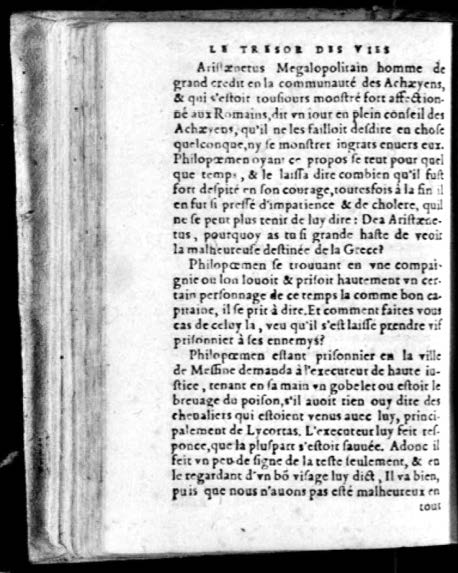 LE TRESOR DES VIES
Aristænetus Megalopolitain homme de
grand credit en la communauté des Achæyens,
& qui s'estoit tousiours monstré fort affection-
né aux Romains, dit vn iour en plein conseil des
Achæyens, qu'il ne les failloit desdire en chose
quelconque, ny se monstrer ingrats enuers eux.
Philopœmen oyant ce propos se teut pour quel
que temps, & le laissa dire combien qu'il fust
fort despité en son courage, toutesfois à la fin il
en fut si pressé d'impatience & de cholere, qu'il
ne se peut plus tenir de luy dire: Dea Aristæne-
tus, pourquoy as tu si grande haste de veoir
la malheureuse destinée de la Grece?
Philopœmen se trouuant en vne compai-
gnie ou lon louoit & prisoit hautement vn cer-
tain personnage de ce temps la comme bon ca-
pitaine, il se prit à dire. Et comment faites vous
cas de celuy la, veu qu'il s'est laissé prendre vif
prisonnier à ses ennemys?
Philopœmen estant prisonnier en la ville
de Messine demanda à l'executeur de haute iu-
stice, tenant en sa main vn gobelet ou estoit le
breuage du poison, s'il auoit rien ouy dire des
cheualiers qui estoient venus auec luy, princi-
palement de Lycortas. L'executeur luy feit res-
ponce, que la pluspart s'estoit sauuée. Adonc il
feit vn peu de signe de la teste seulement, & en
le regardant d'vn bõ visage luy dict, Il va bien,
puis que nous n'auons pas esté malheureux en
tous